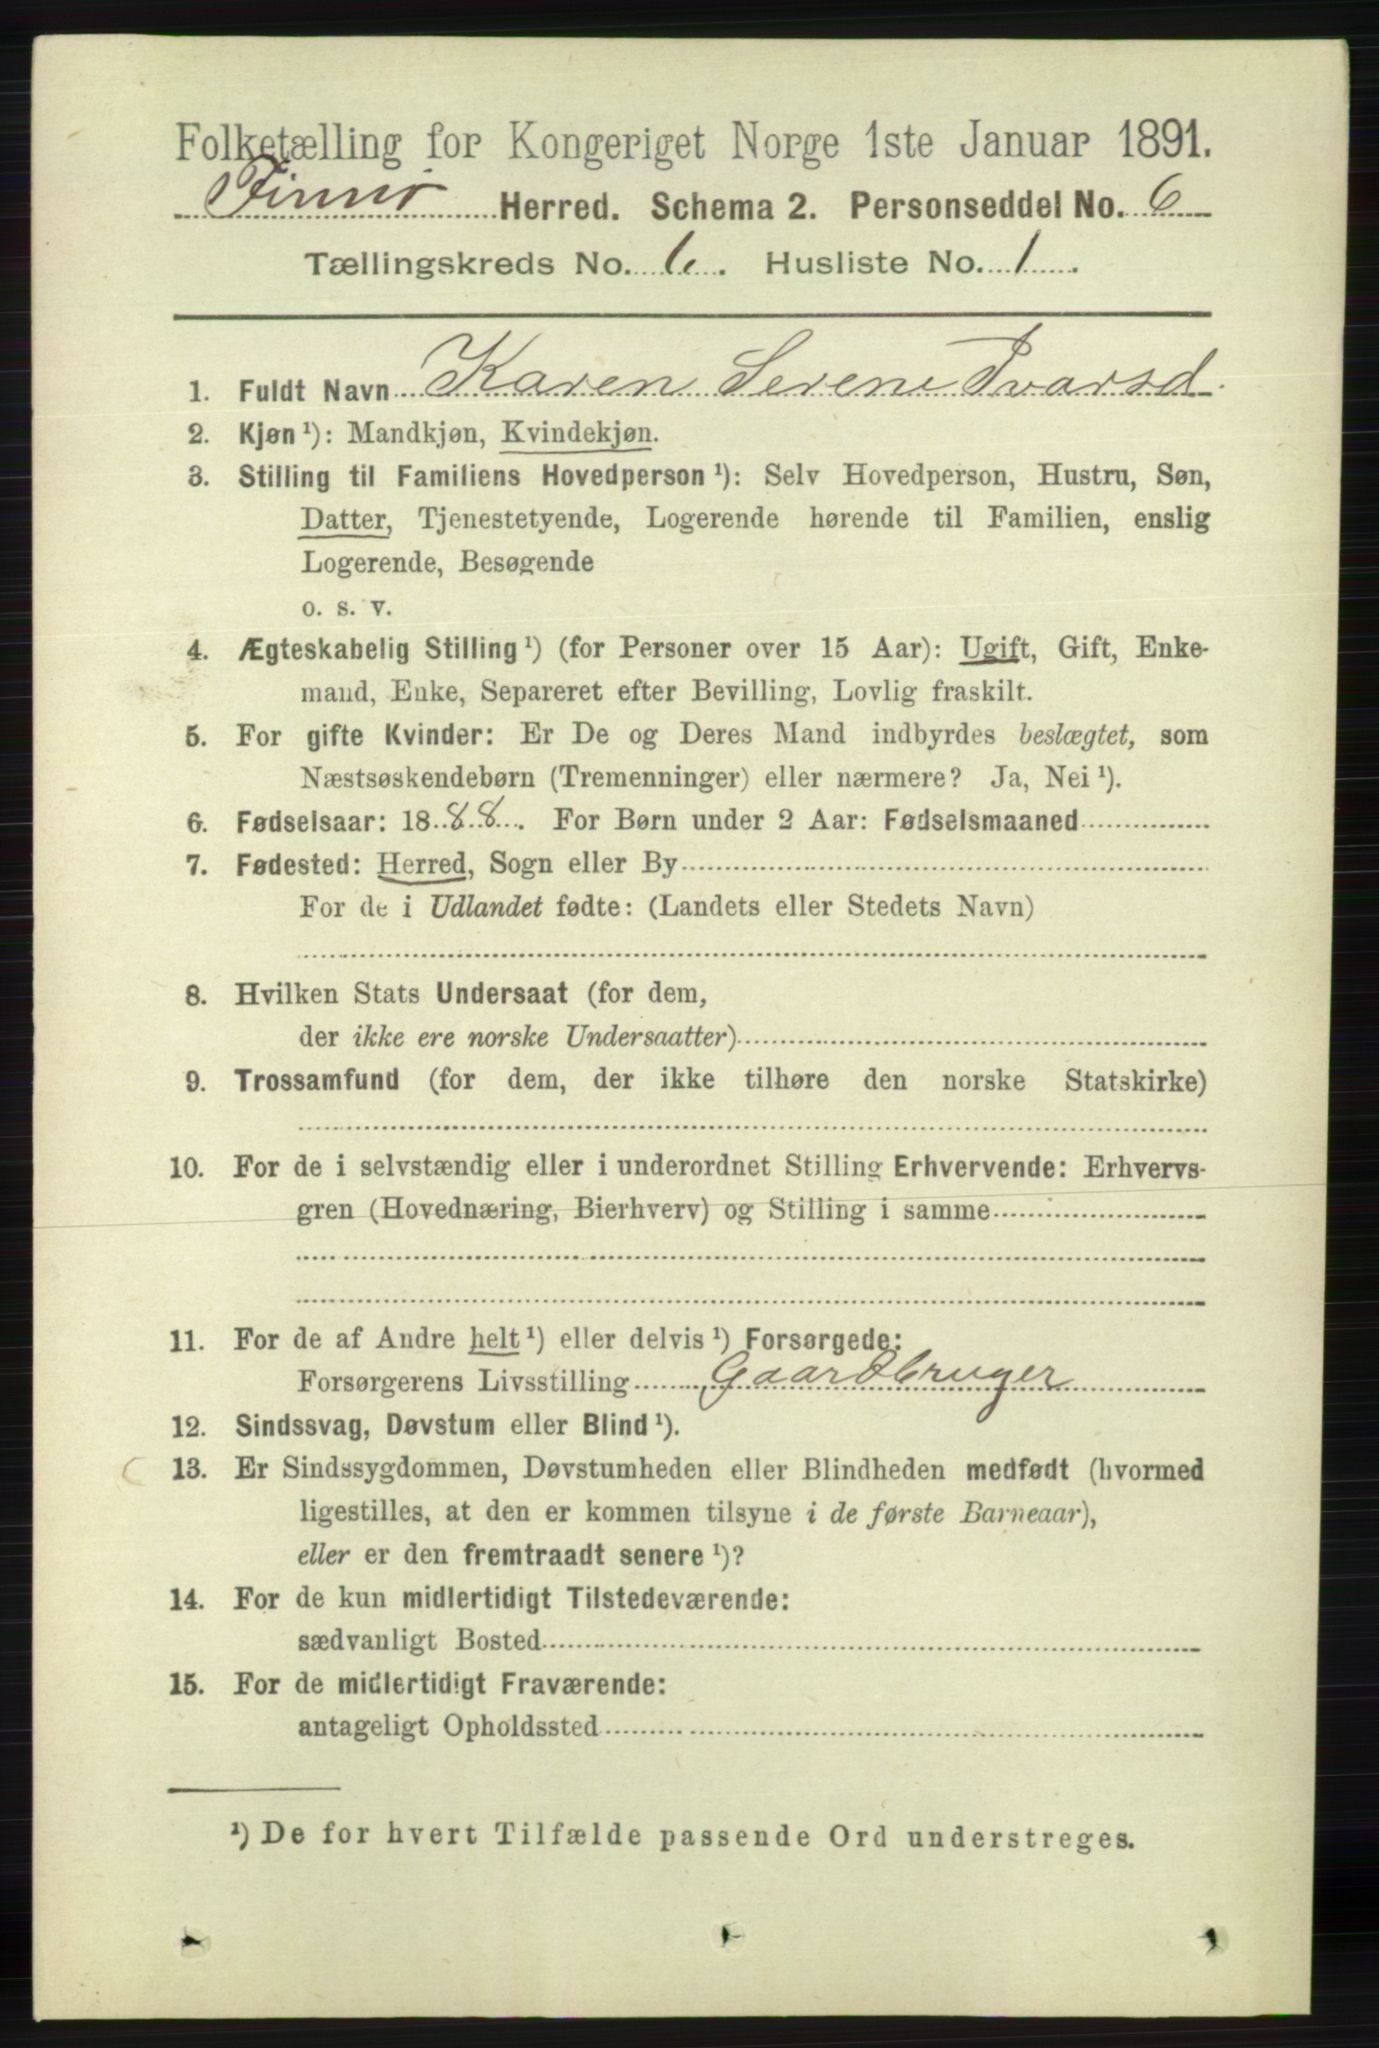 Folketælling for Kongeriget Norge 1ste Januar 1891.
Finnø Herred. Schema 2. Personseddel No. 6
Tællingskreds No. 6. Husliste No. 1.
1. Fuldt Navn Karen Serene Ivarsd.
2. Kjøn ¹): Mandkjøn, Kvindekjøn.
3. Stilling til Familiens Hovedperson ¹): Selv Hovedperson, Hustru, Søn,
Datter, Tjenestetyende, Logerende hørende til Familien, enslig
Logerende, Besøgende
o. s. v.
4. Ægteskabelig Stilling ¹) (for Personer over 15 Aar): Ugift, Gift, Enke-
mand, Enke, Separeret efter Bevilling, Lovlig fraskilt.
5. For gifte Kvinder: Er De og Deres Mand indbyrdes beslægtet, som
Næstsøskendebørn (Tremenninger) eller nærmere? Ja, Nei ¹).
6. Fødselsaar: 1888. For Børn under 2 Aar: Fødselsmaaned
7. Fødested: Herred, Sogn eller By
For de i Udlandet fødte: (Landets eller Stedets Navn)
8. Hvilken Stats Undersaat (for dem,
der ikke ere norske Undersaatter)
9. Trossamfund (for dem, der ikke tilhøre den norske Statskirke)
10. For de i selvstændig eller i underordnet Stilling Erhvervende: Erhvervs-
gren (Hovednæring, Bierhverv) og Stilling i samme
11. For de af Andre helt ¹) eller delvis ¹) Forsørgede:
Forsørgerens Livsstilling Gaardbruger
12. Sindssvag, Døvstum eller Blind ¹).
13. Er Sindssygdommen, Døvstumheden eller Blindheden medfødt (hvormed
ligestilles, at den er kommen tilsyne i de første Barneaar),
eller er den fremtraadt senere ¹)?
14. For de kun midlertidigt Tilstedeværende:
sædvanligt Bosted
15. For de midlertidigt Fraværende:
antageligt Opholdssted
¹) De for hvert Tilfælde passende Ord understreges.